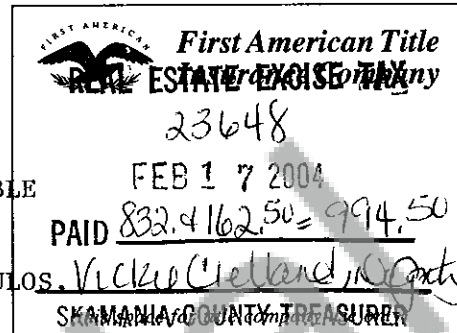 FIRST AMERICAN
First American Title
Insurance Company
REAL ESTATE EXCISE TAX
23648
BLE
FEB 17 2004
PAID 832.+162.50=994.50
LOS. Vickie Clelland,
SKAMANIA COUNTY TREASURER